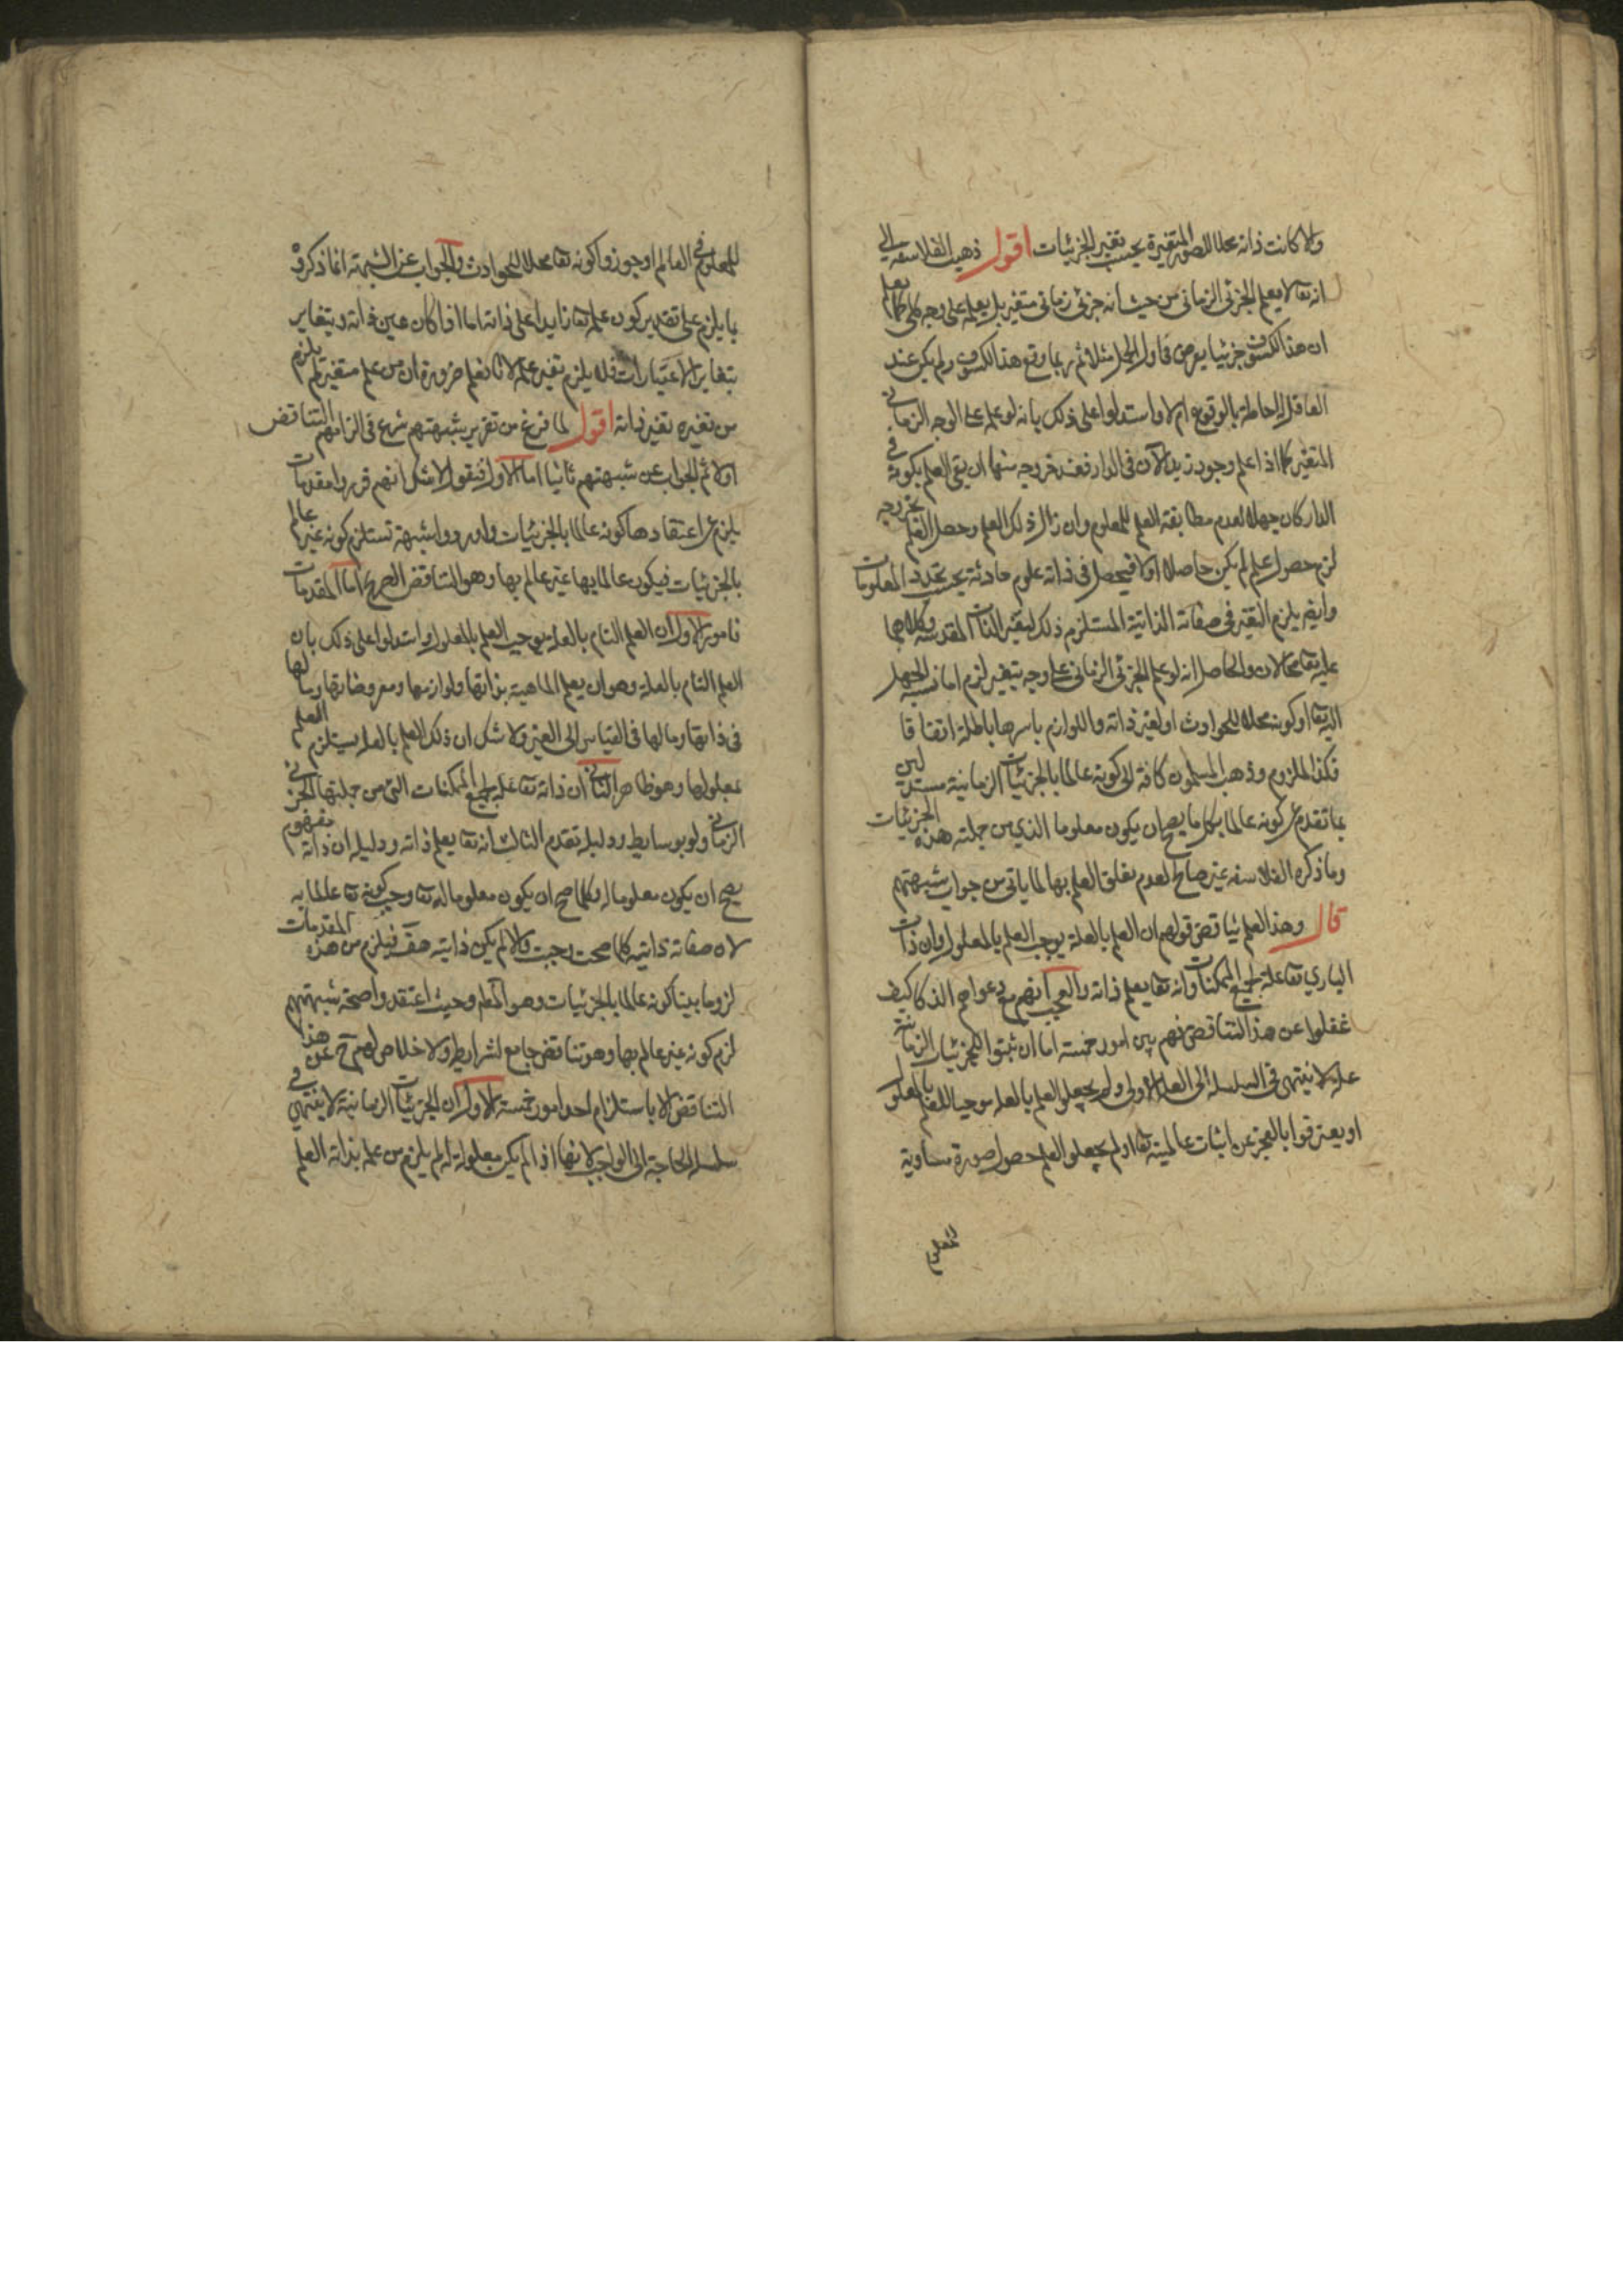 والا كانت ذاته محلا للصور المتغيرة بحسب تغير الجزئيات اقول ذهب الفلاسفه الى
انه تعا لا يعلم الجزئى الزمانى من حيث انه جزئى زمانى متغير بل يعلمه على وجه كلى كما يعلم
ان هذا الكسوف جزئيا يعرض فى اول الحمل مثلا ثم ربما وقع هذا الكسوف ولم يكن عند
العاقل الاحاطة بالوقوع ام لا واستدلوا على ذلك بانه لو علمه على الوجه الزمانى
المتغير كما اذا علم وجود زيد الآن فى الدار فعند خروجه منها ان بقى العلم بكونه فى
الدار كان جهلا لعدم مطابقة العلم للمعلوم وان زال ذلك العلم وحصل العلم بخروجه
لزم حصول علم لم يكن حاصلا اولا فيحصل فى ذاته علوم حادثة بحسب تجدد المعلومات
وايضر يلزم التغير فى صفاته الذاتية المستلزم ذلك لتغير الذات المقدسه وكلاهما
عليه تعا محالان والحاصل انه لو علم الجزئى الزمانى على وجه يتغير لزم اما نسبة الجهل
اليه تعا او كونه محلا للحوادث او لغير ذاته واللوازم باسرها باطلة اتفاقا
فكذا الملزوم وذهب المسلمون كافة الى كونه عالما بالجزئيات الزمانية مستدلين
بما تقدم من كونه عالما بكل ما يصح ان يكون معلوما الذي من جملته هذه الجزئيات
وما ذكره الفلاسفه غير صالح لعدم تعلق العلم بها لما ياتى من جواب شبهتهم
قال وهذا العلم يناقض قولهم ان العلم بالعلة يوجب العلم بالمعلول وان ذات
البارى تعا علة لجميع الممكنات وانه تعا يعلم ذاته والعجب انهم مع دعواهم الذكا كيف
غفلوا عن هذا التناقض فهم بين امور خمسة اما ان يثبتوا للجزئيات الزمانية
علة لا ينتهى فى السلسلة الى العلة الاولى ولم يجعلوا العلم بالعلة موجبا للعلم بالمعلول
او يعترفوا بالعجز عن اثبات عالميته تعا او لم يجعلوا العلم حصول صورة مساوية
للمعلوم
للمعلوم فى العالم او جوزوا كونه تعا محلا للحوادث والجواب عن الشبهة انما ذكروه
ما يلزم على تقدير كون علمه تعا زايدا على ذاته اما اذا كان عين ذاته ويتغاير
بتغاير الاعتبارات فلا يلزم تغير علمه لانا نعلم ضرورة ان من علم متغيرا لم يلزم
من تغيره تغير ذاته اقول لما فرغ من تقرير شبهتهم شرع فى الزامهم التناقض
اولا ثم الجواب عن شبهتهم ثانيا اما الاول فنقول لا شك انهم قرروا مقدمات
يلزم من اعتقادها كونه عالما بالجزئيات واوردوا شبهة تستلزم كونه غير عالم
بالجزئيات فيكون عالما بها غير عالم بها وهو التناقض الصريح اما المقدمات
فامور الاول ان العلم التام بالعلة يوجب العلم بالمعلول واستدلوا على ذلك بان
العلم التام بالعلة وهو ان يعلم الماهية بذاتها ولوازمها ومعروضاتها وما لها
فى ذاتها وما لها فى القياس الى الغير ولا شك ان ذلك العلم بالعلة يستلزم العلم
بمعلولها وهو ظاهر الثانى ان ذاته تعا علة لجميع الممكنات التى من جملتها الجزئى
الزمانى ولو بوسايط ودليله تقدم الثالث انه تعا يعلم ذاته ودليله ان ذاته مفهوم
يصح ان يكون معلوما له وكلما صح ان يكون معلوما له تعا وجب كونه تعا عالما به
لان صفاته ذاتية كلما صحت وجبت والا لم يكن ذاتية هف فيلزم من هذه المقدمات
لزوما بينا كونه عالما بالجزئيات وهو المط وحيث اعتقدوا صحة شبهتهم
لزم كونه غير عالم بها وهو تناقض جامع لشرايطه ولا خلاص لهم ح عن هذا
التناقض الا باستلزام احد امور خمسة الاول ان الجزئيات الزمانية لا ينتهى فى
سلسلة الحاجة الى الواجب لانها اذا لم يكن معلولة له لم يلزم من علمه بذاته العلم